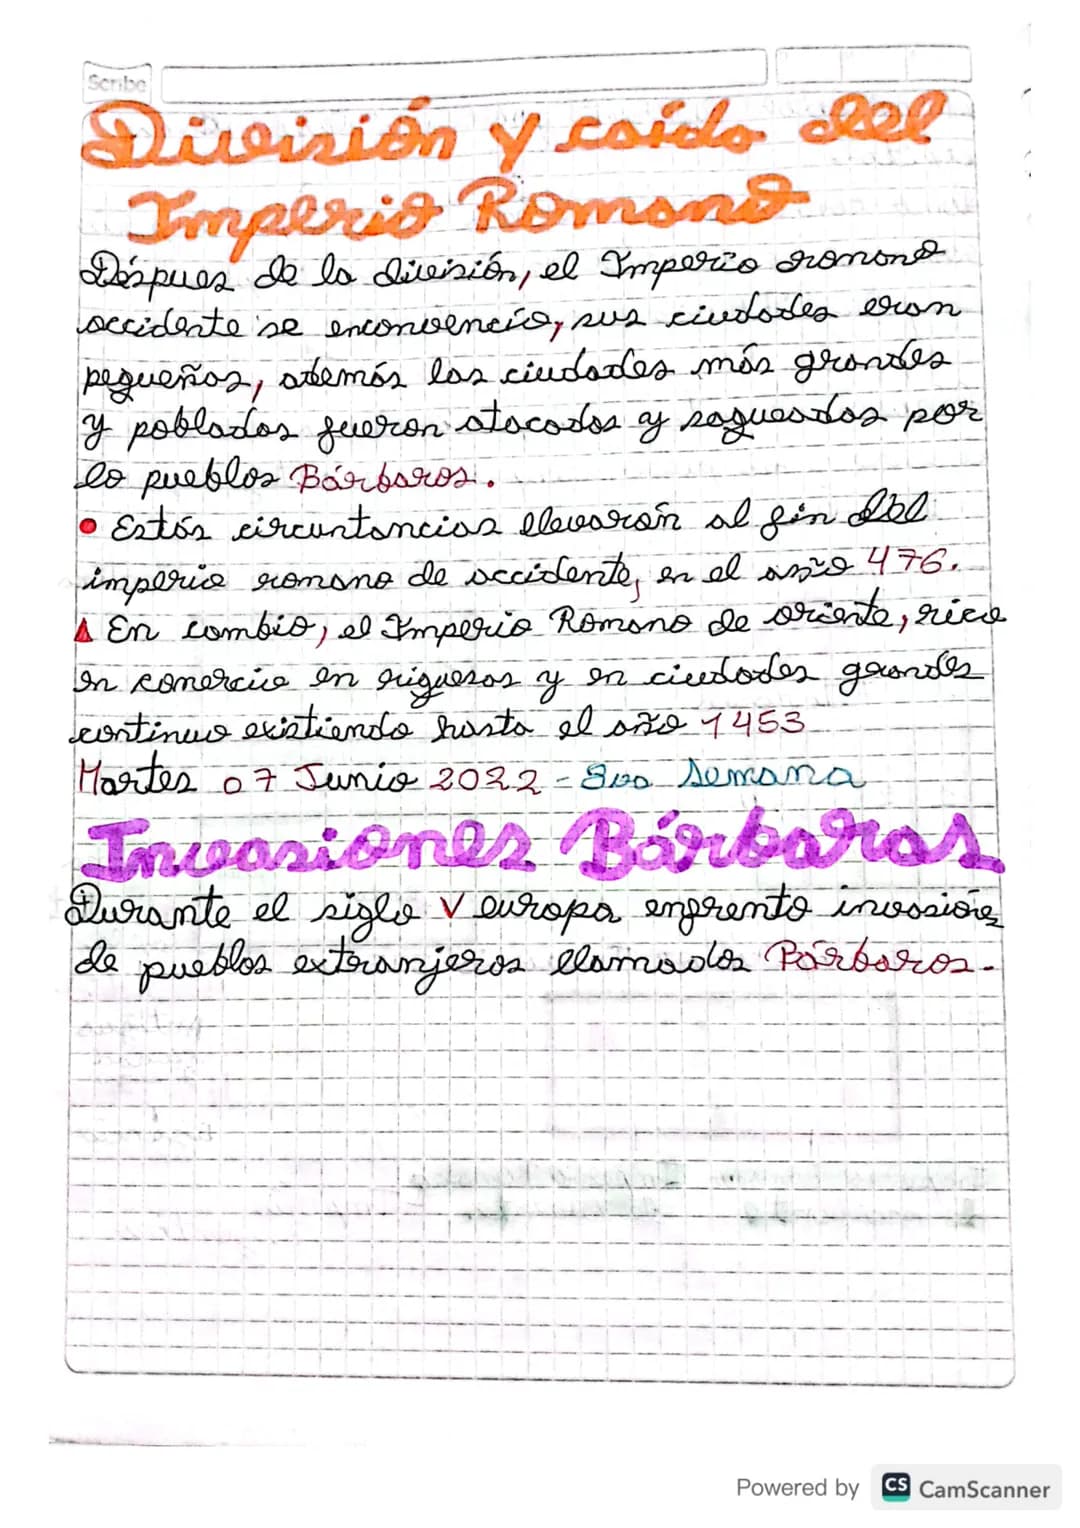 Scribe
División y caída del
Imperio Romano
Déspues de la división, el Imperio romano
occidente se enconvencio, sus ciudades eran
pequeñas, además las ciudades más grandes
y pobladas fueron atacadas y saqueadas por
lo pueblos Bárbaros.
Estás circuntancias llevarón al fin del
imperio romano de occidente, en el año 476.
En cambio, el Imperio Romano de oriente, rico
en comercio en riquesas y en ciudades grandes
continuo existiendo hasta el año 1453
Martes 07 Junio 2022 - 8va Semana
Invasiones Bárbaras
Durante el siglo V europa enfrento invasiones
de pueblos extranjeros llamados Bárbaros.
Powered by CS CamScanner